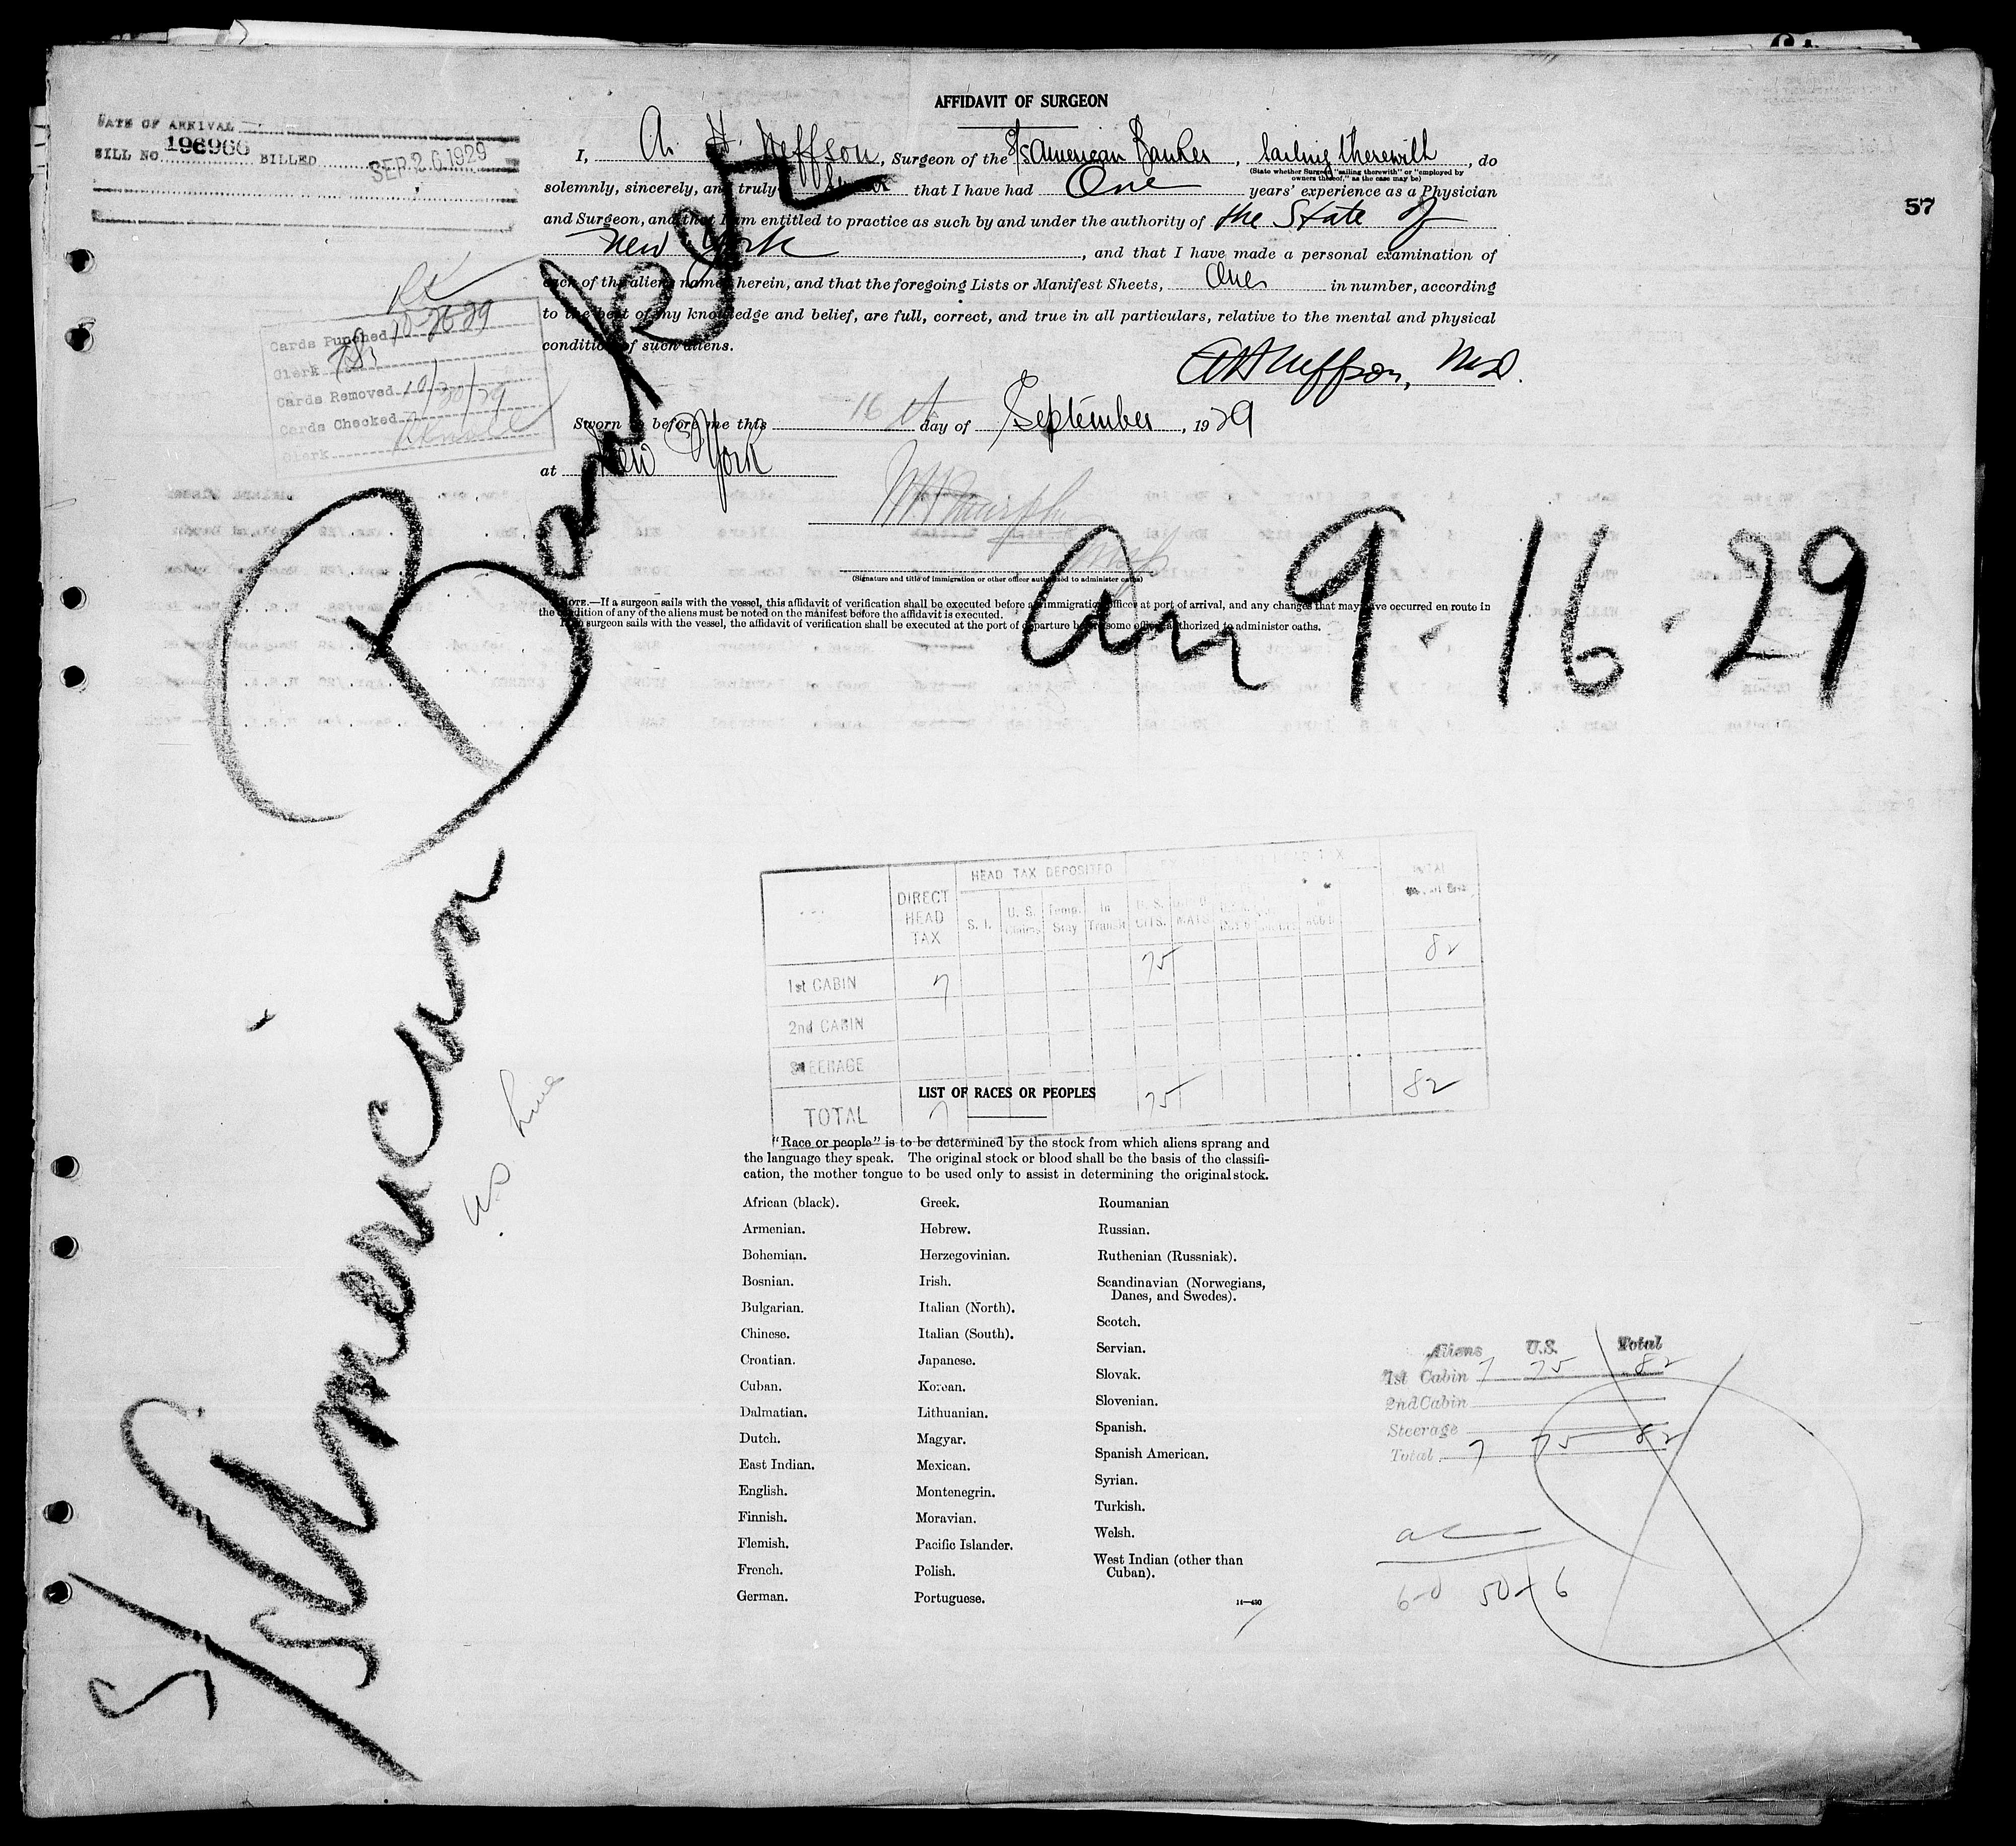 AFFIDAVIT OF SURGEON
DATE OF ARRIVAL
BILL NO. 196966 BILLED SEP 26 1929
57
I, A. H. Neffson, Surgeon of the S/S American Banker, sailing therewith, do
(State whether Surgeon "sailing therewith" or "employed by
owners thereof," as the case may be)
solemnly, sincerely, and truly swear that I have had One years' experience as a Physician
and Surgeon, and that I am entitled to practice as such by and under the authority of the State of
New York, and that I have made a personal examination of
each of the aliens named herein, and that the foregoing Lists or Manifest Sheets, One in number, according
to the best of my knowledge and belief, are full, correct, and true in all particulars, relative to the mental and physical
condition of such aliens.
AH Neffson, M.D.
Sworn to before me this 16th day of September, 1929
at New York
(Signature and title of immigration or other officer authorized to administer oaths)
NOTE.—If a surgeon sails with the vessel, this affidavit of verification shall be executed before an immigration officer at port of arrival, and any changes that may have occurred en route in
the condition of any of the aliens must be noted on the manifest before the affidavit is executed.
If no surgeon sails with the vessel, the affidavit of verification shall be executed at the port of departure before some officer authorized to administer oaths.
Cards Punched 10-26-29
Clerk
Cards Removed 10/30/29
Cards Checked
Clerk
S/S American Banker
Arr 9-16-29
HEAD TAX DEPOSITED
DIRECT HEAD TAX S. I. U. S. Temp. Stay In Transit U. S. CITS. TOTAL
1st CABIN 7 75 82
2nd CABIN
STEERAGE
TOTAL 7 75 82
LIST OF RACES OR PEOPLES
"Race or people" is to be determined by the stock from which aliens sprang and
the language they speak. The original stock or blood shall be the basis of the classifi-
cation, the mother tongue to be used only to assist in determining the original stock.
African (black).
Armenian.
Bohemian.
Bosnian.
Bulgarian.
Chinese.
Croatian.
Cuban.
Dalmatian.
Dutch.
East Indian.
English.
Finnish.
Flemish.
French.
German.
Greek.
Hebrew.
Herzegovinian.
Irish.
Italian (North).
Italian (South).
Japanese.
Korean.
Lithuanian.
Magyar.
Mexican.
Montenegrin.
Moravian.
Pacific Islander.
Polish.
Portuguese.
Roumanian
Russian.
Ruthenian (Russniak).
Scandinavian (Norwegians,
Danes, and Swedes).
Scotch.
Servian.
Slovak.
Slovenian.
Spanish.
Spanish American.
Syrian.
Turkish.
Welsh.
West Indian (other than
Cuban).
14—430
Aliens U.S. Total
1st Cabin 7 75 82
2nd Cabin
Steerage
Total 7 75 82